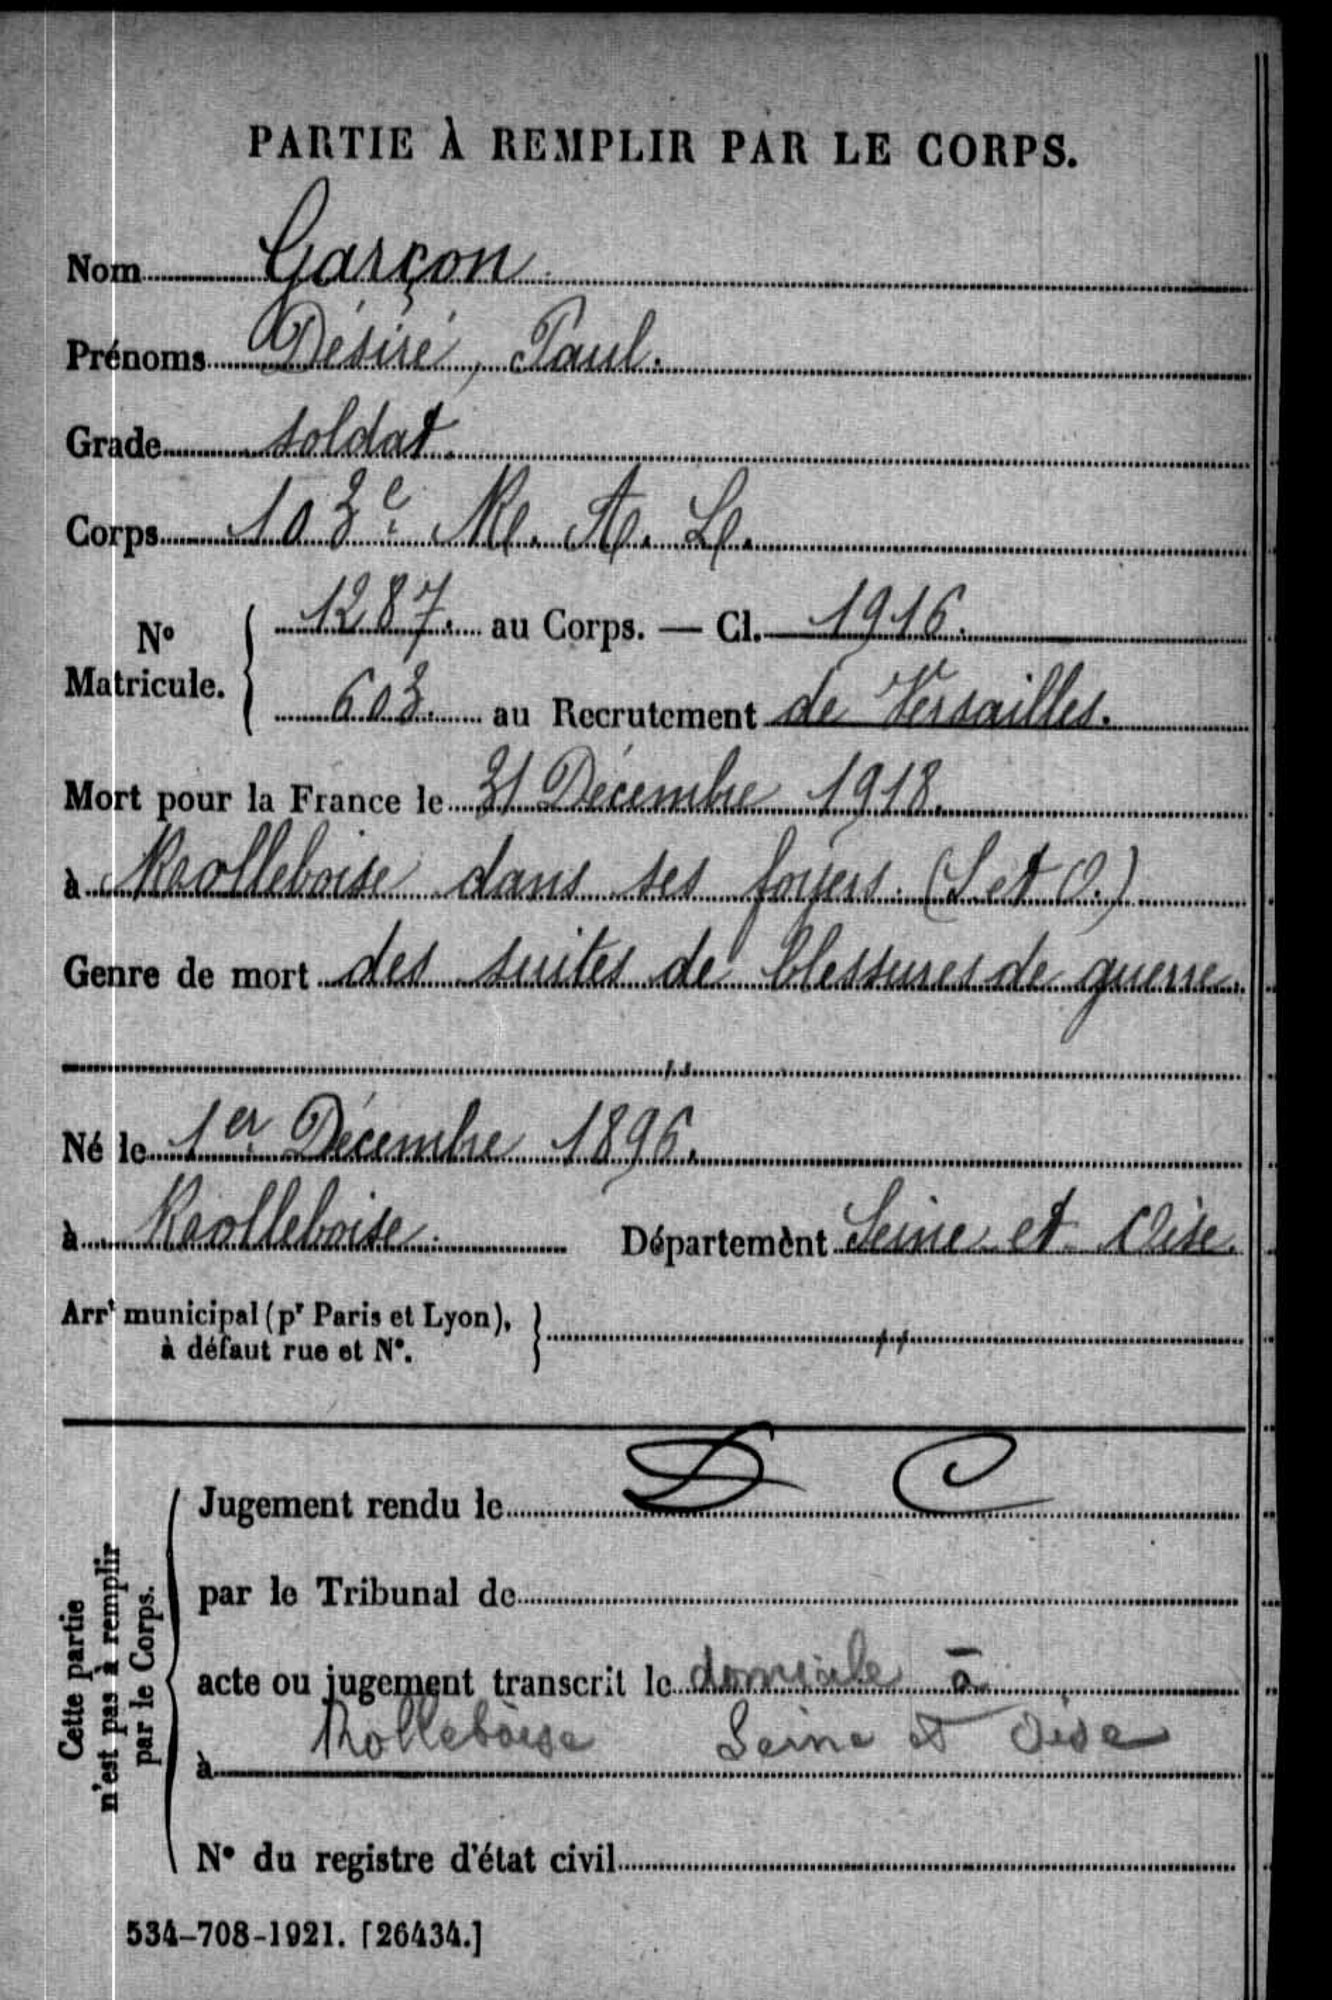 PARTIE À REMPLIR PAR LE CORPS.
Nom Garçon
Prénoms Désiré, Paul.
Grade soldat.
Corps 103e R. A. L.
No Matricule. 1287. au Corps. — Cl. 1916.
603. au Recrutement de Versailles.
Mort pour la France le 31 Décembre 1918.
à Rolleboise dans ses foyers. (S et O.)
Genre de mort des suites de blessures de guerre.
Né le 1er Décembre 1896.
à Rolleboise. Département Seine et Oise.
Arrt municipal (pr Paris et Lyon),
à défaut rue et No.
Cette partie
n'est pas à remplir
par le Corps.
Jugement rendu le D C
par le Tribunal de
acte ou jugement transcrit le domicile à
à Rolleboise Seine et Oise
No du registre d'état civil
534-708-1921. [26434.]